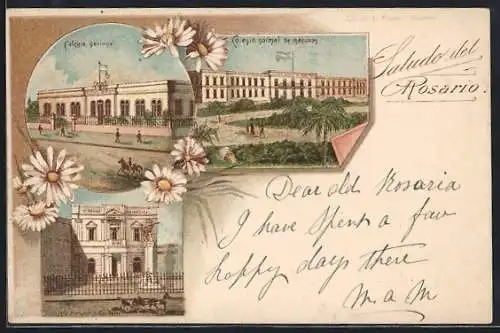 Colegio Nacional
Colegio Normal de Maestras
Saludo del
Rosario.
Dear old Rosaria
I have spent a faw
happy days there
M a M